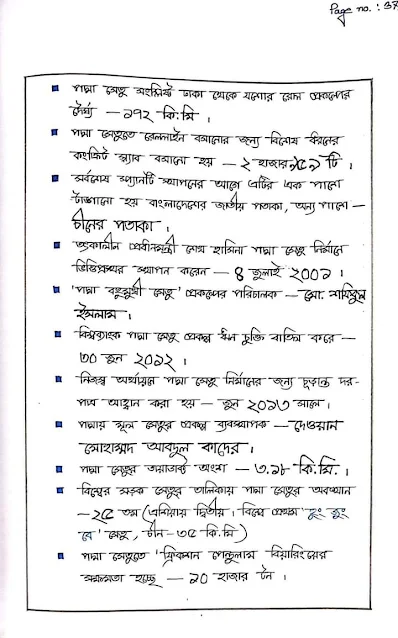 Page no. : 37
পদ্মা সেতু সংশ্লিষ্ট ঢাকা থেকে যশোর রেল প্রকল্পের
দৈর্ঘ্য — ১৭২ কি:মি ।
পদ্মা সেতুতে রেললাইন বসানোর জন্য বিশেষ ধরনের
কংক্রিট স্ল্যাব বসানো হয় — ২ হাজার ৯৫৯ টি ।
সর্বশেষ স্প্যানটি স্থাপনের আগে এটির এক পাশে
টাঙ্গানো হয় বাংলাদেশের জাতীয় পতাকা, অন্য পাশে —
চীনের পতাকা ।
তৎকালীন প্রধানমন্ত্রী শেখ হাসিনা পদ্মা সেতু নির্মানে
ভিত্তিপ্রস্তর স্থাপন করেন — ৪ জুলাই ২০০১ ।
'পদ্মা বহুমুখী সেতু' প্রকল্পের পরিচালক — মো. শফিকুল
ইসলাম ।
বিশ্বব্যাংক পদ্মা সেতু প্রকল্প ঋন চুক্তি বাতিল করে —
৩০ জুন ২০১২ ।
নিজস্ব অর্থায়নে পদ্মা সেতু নির্মানের জন্য চূড়ান্ত দর-
পত্র আহ্বান করা হয় — জুন ২০১৩ সালে ।
পদ্মায় মূল সেতুর প্রকল্প ব্যবস্থাপক — দেওয়ান
মোহাম্মদ আবদুল কাদের ।
পদ্মা সেতুর ভায়াডাক্ট অংশ — ৩.১৮ কি:মি: ।
বিশ্বের সড়ক সেতুর তালিকায় পদ্মা সেতুর অবস্থান
— ২৫ তম (এশিয়ায় দ্বিতীয় । বিশ্বে প্রথম 'রুং জুং
বে' সেতু, চীন - ৩৫ কি:মি)
পদ্মা সেতুতে 'ফ্রিকশান পেন্ডুলাম বিয়ারিংয়ের
সক্ষমতা হচ্ছে — ১০ হাজার টন ।